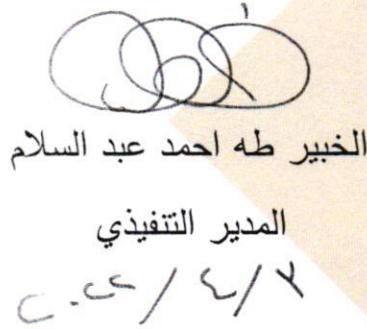 الخبير طه احمد عبد السلام
المدير التنفيذي
٣/٤/٢٠٢٢